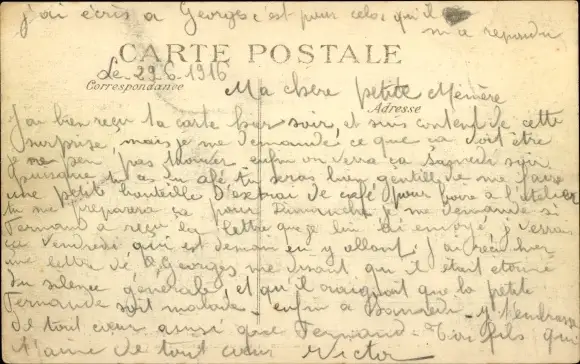 j'ai écris a Georges c'est pour celos qu'il
m'a repondu
CARTE POSTALE
Le 29-6-1916
Correspondance
Ma chère petite Mémère
Adresse
J'ai bien reçu ta carte hier soir, et suis content de cette
surprise, mais je me demande, ce que ca doit être
je ne peu pas trouver enfin on verra ca samedi soir
puisque tu a du alé tu seras bien gentille de me faire
une petite bouteille D'extrai de café pour boire a l'atelier
tu me preparera ca pour Dimanche je me demande si
Fernand a reçu la lettre que je lui ai envoyé, j'verrai
ca vendredi qui est demain en y allant. J'ai reçu hier
une lettre de Georges me disant qu'il était etonné
du silence générale, et qu'il craignait que la petite
Fernande soit malade - enfin a Samedi - j't'embrasse
de tout cœur ainsi que Fernand - Ton fils qui
t'aime de tout cœur Victor